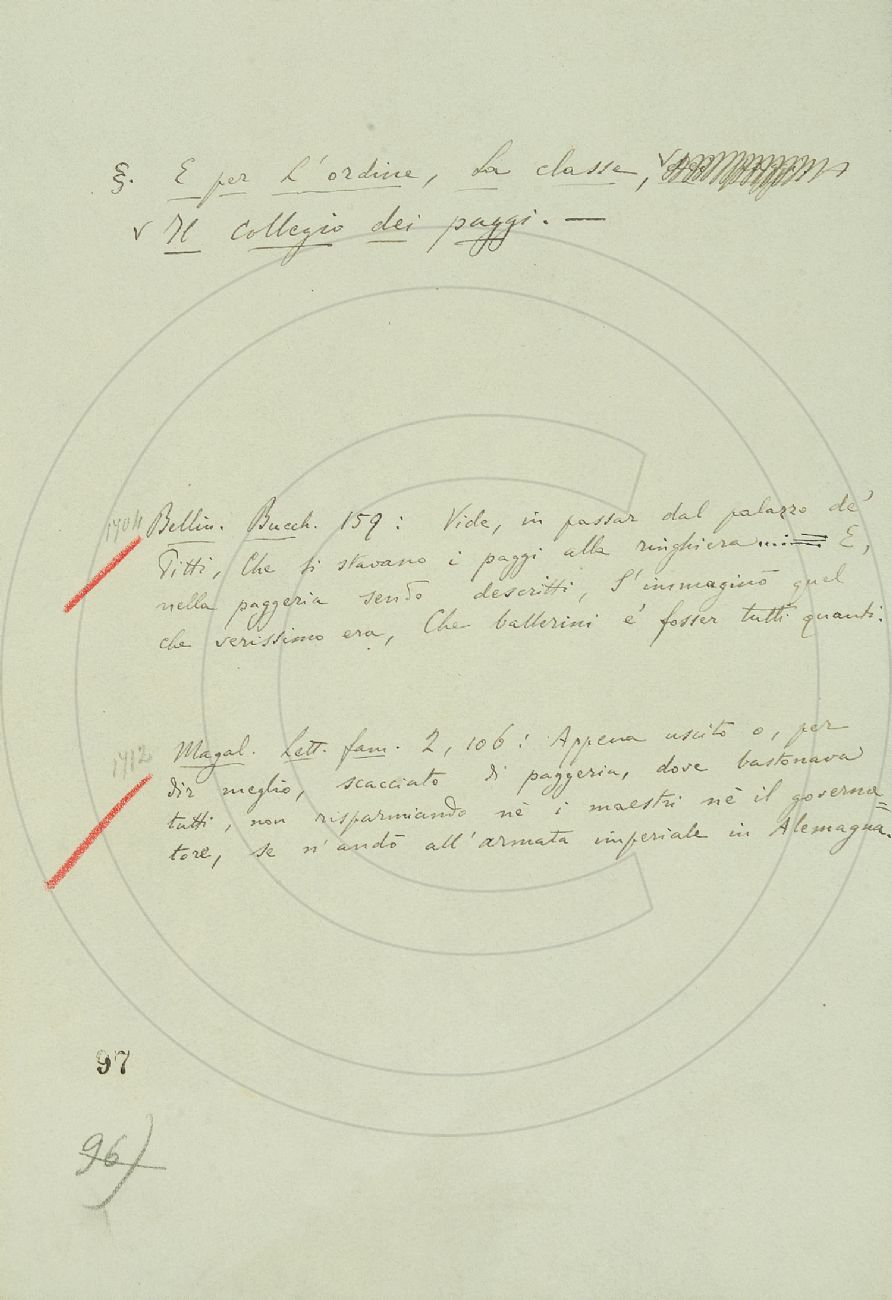 §. E per L'ordine, La classe,
Il collegio dei paggi. —
1704 Bellin. Bucch. 159: Vide, in passar dal palazzo de'
Pitti, Che si stavano i paggi alla ringhiera..... E,
nella paggeria sendo descritti, S'immaginò quel
che verissimo era, Che ballerini e' fosser tutti quanti.
1712 Magal. Lett. fam. 2, 106: Appena uscito o, per
dir meglio, scacciato di paggeria, dove bastonava
tutti, non risparmiando nè i maestri nè il governa=
tore, se n'andò all'armata imperiale in Alemagna.
97
96)